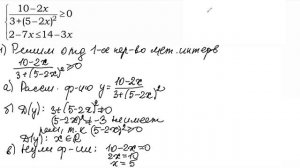 { 10-2x / 3+(5-2x)² ≥0
2-7x≤14-3x
1) Решим отд 1-ое нер-во мет. интерв
10-2x / 3+(5-2x)² ≥0
а) Рассм. ф-ию y= 10-2x / 3+(5-2x)²
б) D(y): 3+(5-2x)²≠0
(5-2x)²≠-3 не имеет
реш, т.к (5-2x)²≥0
D(y): x∈R
в) Нули ф-ии: 10-2x=0
2x=10
x=5